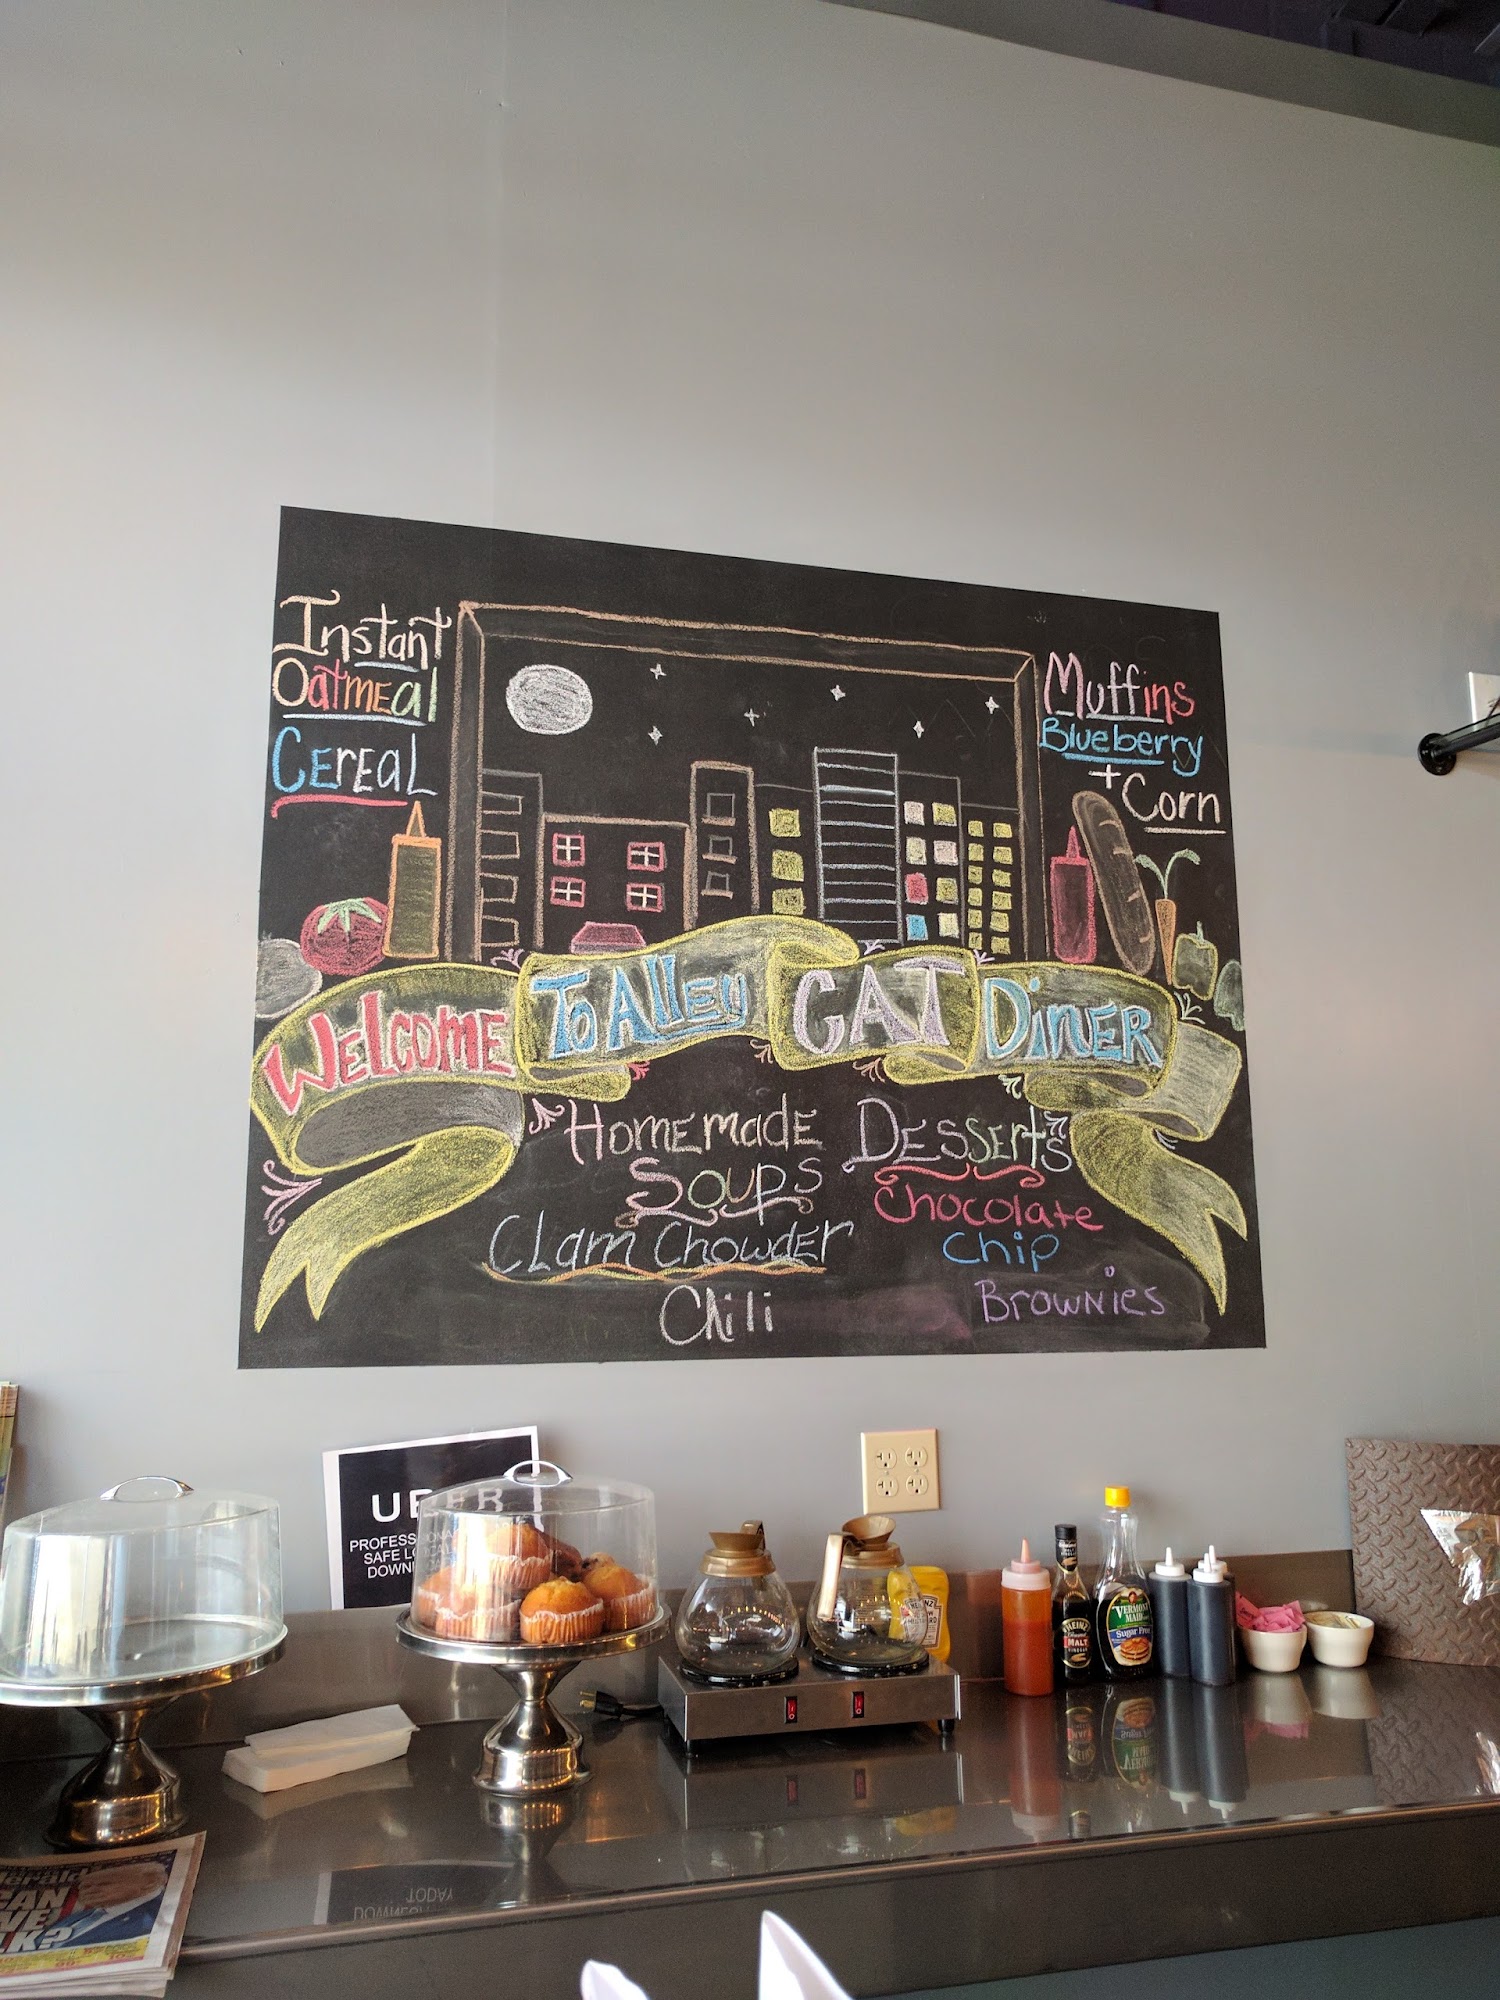 Instant
Oatmeal
Cereal
Muffins
Blueberry
+ Corn
Welcome To Alley CAT Diner
Homemade
Soups
Clam Chowder
Chili
Desserts
Chocolate
Chip
Brownies
UBER
SAFE
HEINZ
HEINZ
MALT
VERMONT
MAID
Sugar Free
TODAY